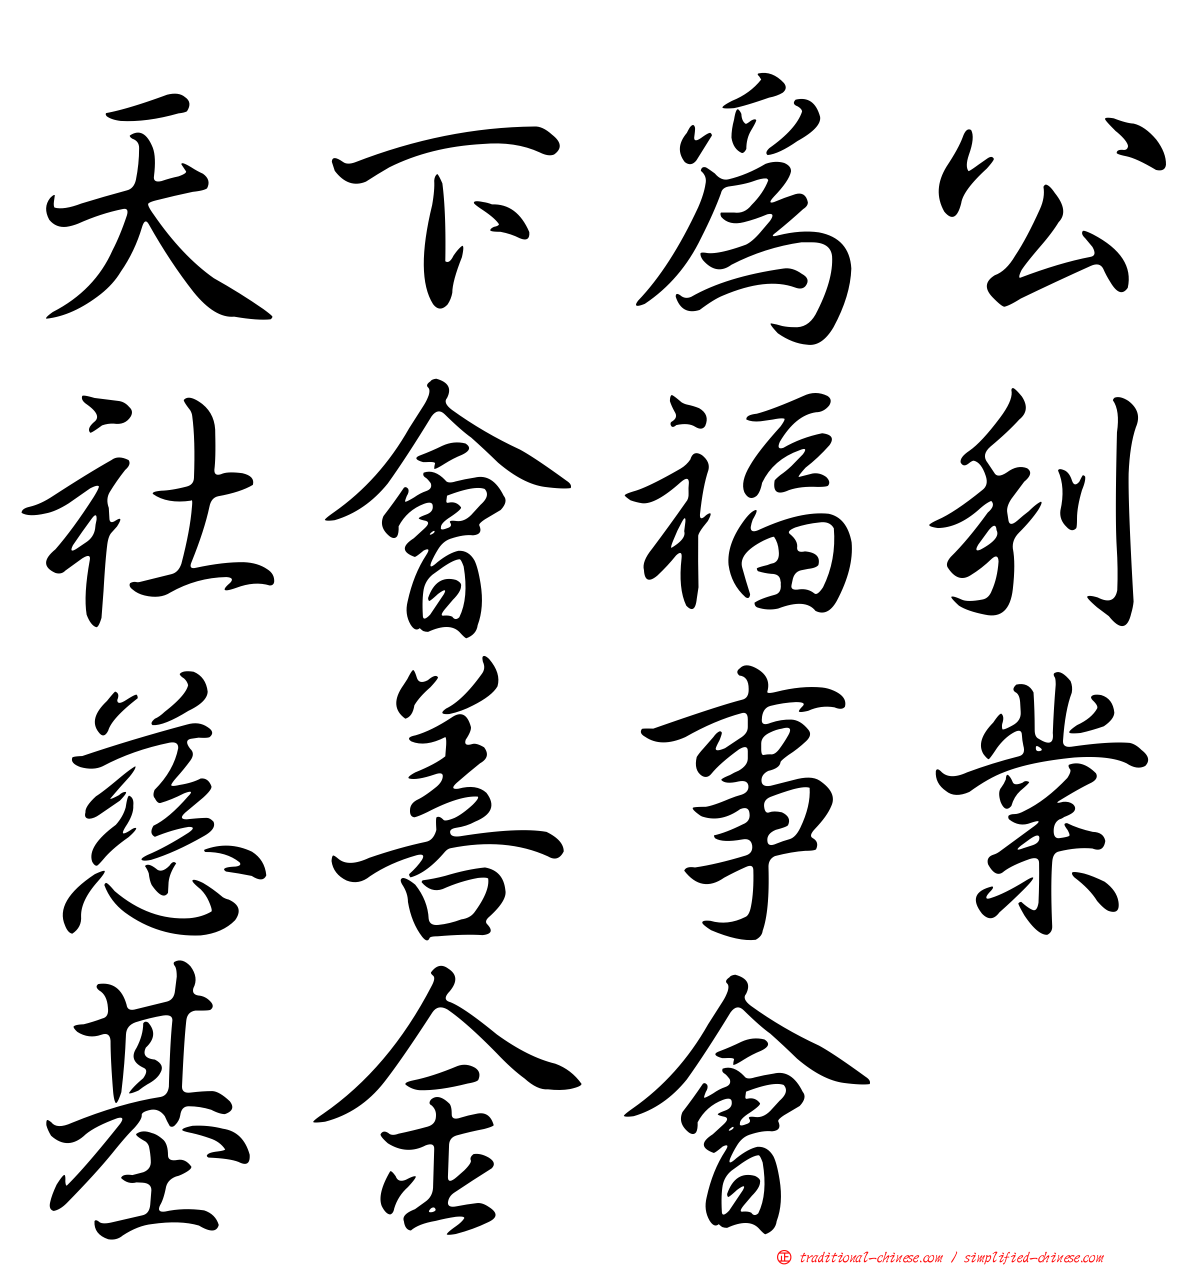 天下為公
社會福利
慈善事業
基金會
正 traditional-chinese.com / simplified-chinese.com